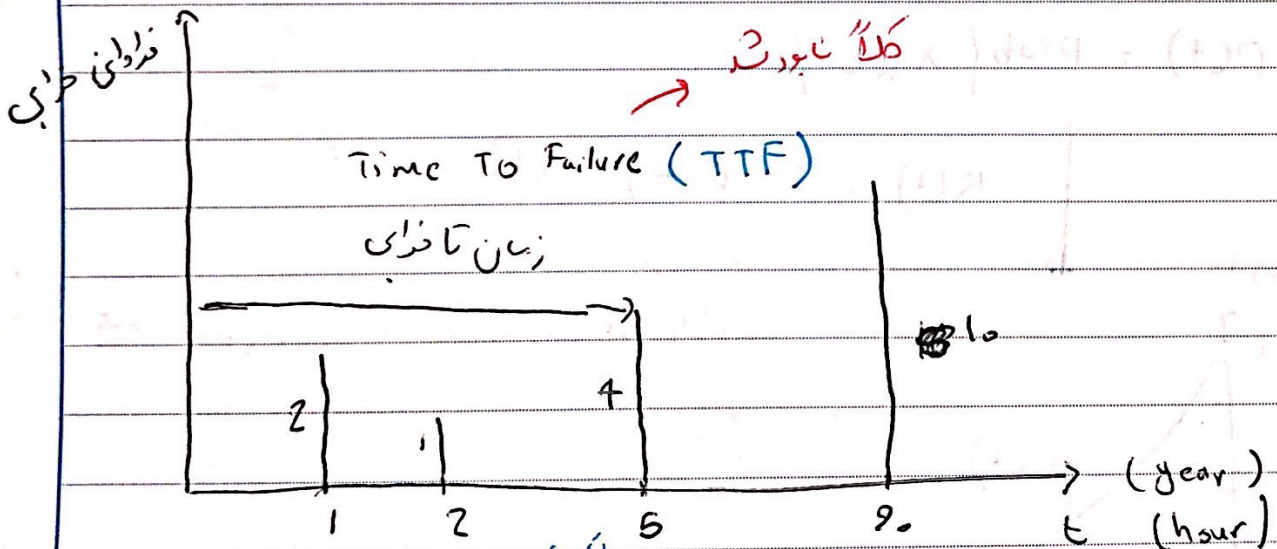 فراوانی خرابی
کلاً نابود شد
Time To Failure (TTF)
زمان تا خرابی
2
1
4
10
(year)
1 2 5 90 t (hour)